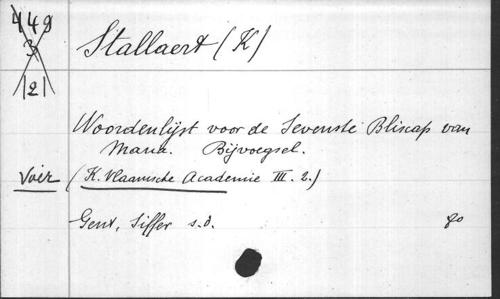 449
3
121
Stallaert (K)
Woordenlijst voor de Sevenste Bliscap van
Maria. Bijvoegsel.
Voir (K. Vlaamsche Academie III. 2.)
Gent, Siffer s.d. 8o